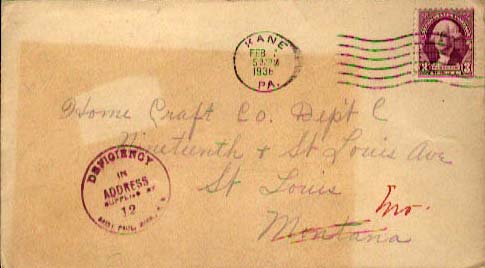 KANE
FEB
1936
PA.
3 3
Home Craft Co. Dep't C
Nineteenth & St Louis Ave
St Louis
Mo.
Montana
DEFICIENCY
IN
ADDRESS
SUPPLIED BY
12
SAINT PAUL, MINN.